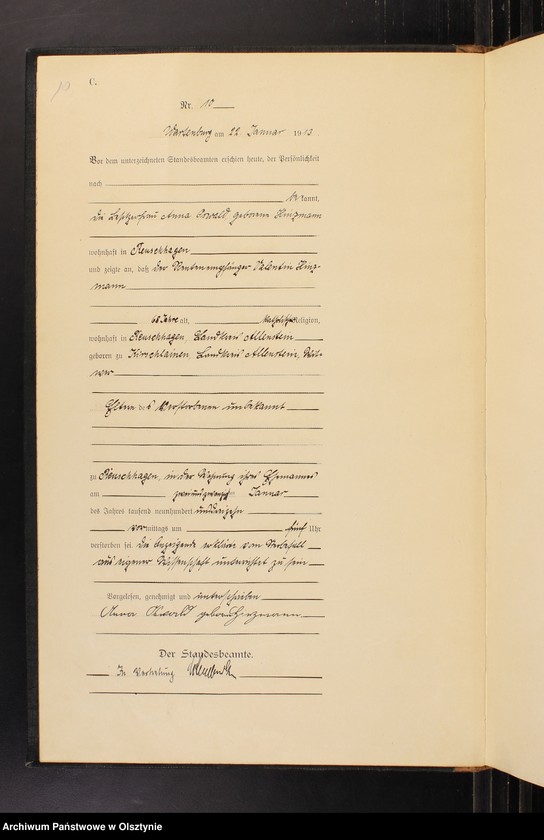 C.
Nr. 10
Wartenburg am 22 Januar 1913.
Vor dem unterzeichneten Standesbeamten erschien heute, der Persönlichkeit
nach
bekannt,
die Besitzerfrau Anna Oswald geborene Hinzmann
wohnhaft in Reuschhagen
und zeigte an, daß der Rentenempfänger Valentin Hinz-
mann
68 Jahre alt, katholischer Religion,
wohnhaft in Reuschhagen, Landkreis Allenstein
geboren zu Kirschlainen, Landkreis Allenstein, Wit-
wer
Eltern des Verstorbenen unbekannt
zu Reuschhagen, in der Wohnung ihres Ehemannes
am zweiundzwanzigsten Januar
des Jahres tausend neunhundert und dreizehn
vormittags um fünf Uhr
verstorben sei. Die Anzeigende erklärte vom Sterbefall
aus eigener Wissenschaft unterrichtet zu sein
Vorgelesen, genehmigt und unterschrieben
Anna Oswald geborene Hinzmann
Der Standesbeamte.
In Vertretung
Archiwum Państwowe w Olsztynie